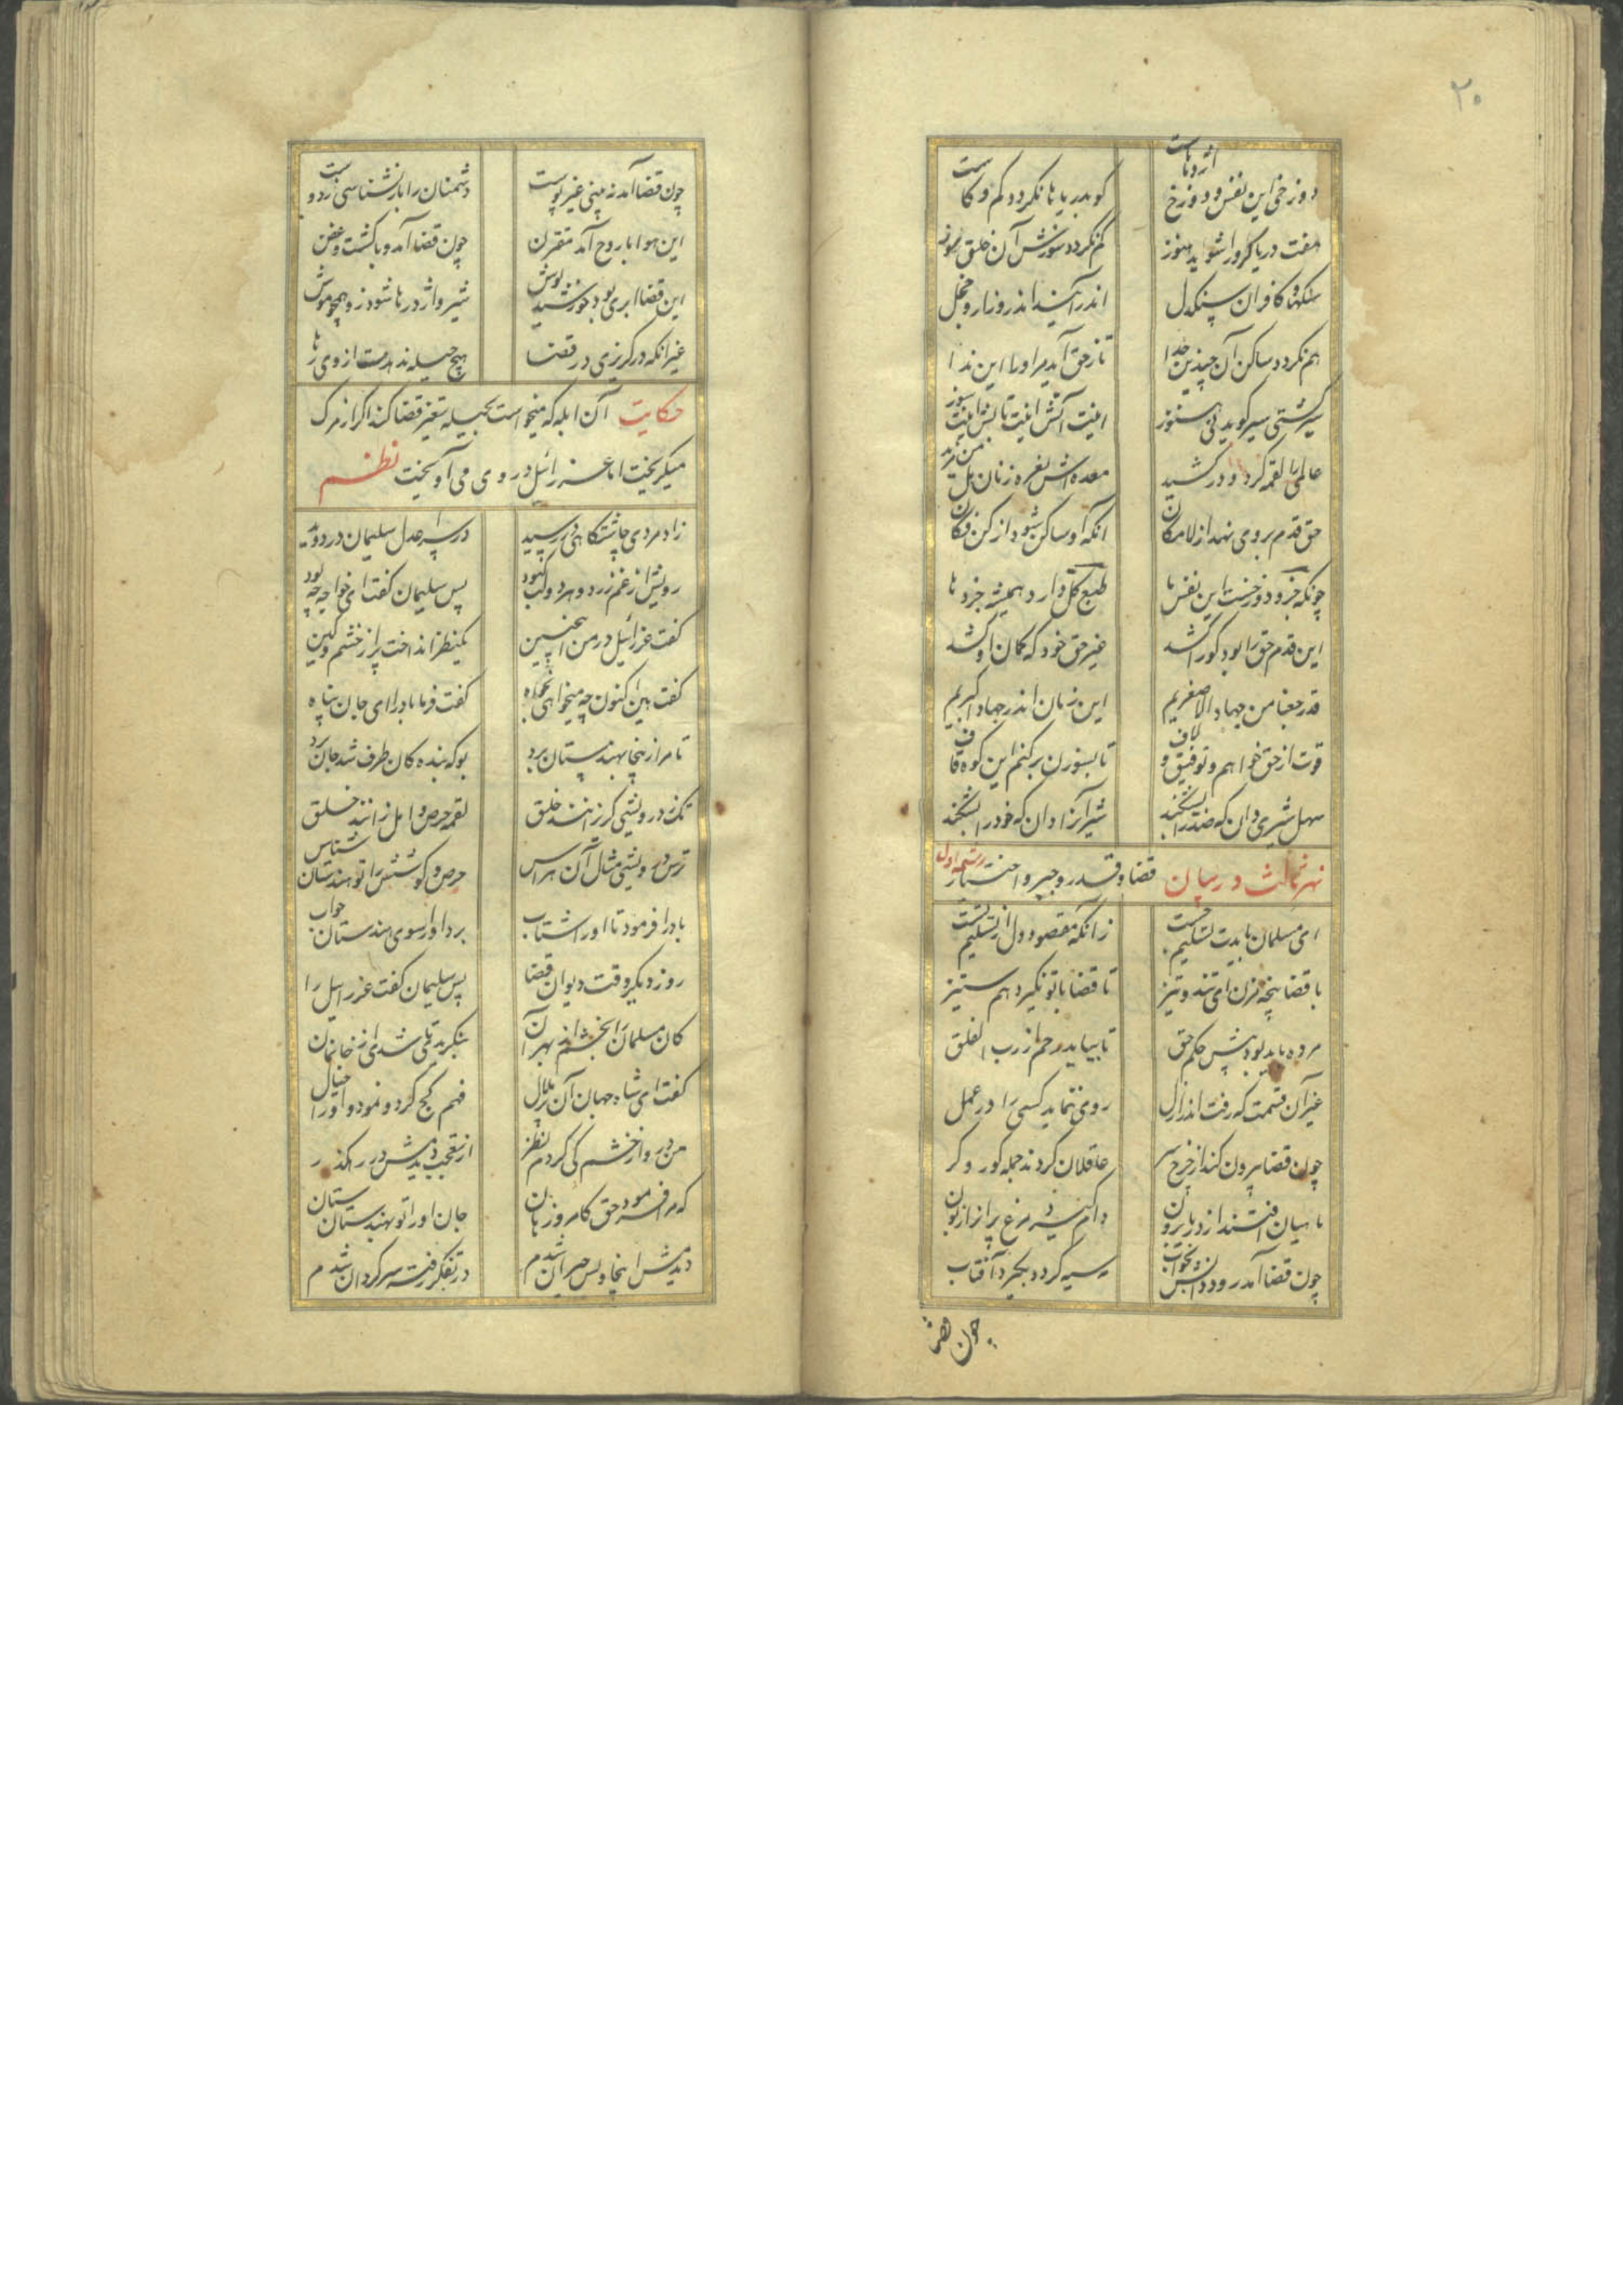 ۲۰
دوزخی این نفس و دوزخ اژدهاست کو بدریاها نکردد کم و کاست
هفت دریا کر در اشوید هنوز کم نکردد سوزش آن خلق سوز
سنکها و کافران سنکدل اندر آیند اندر و زار و خجل
هم نکردد ساکن آن چندین غذا تا ز حق آید مر اورا این ندا
سیر کشتی سیر کوید نی هنوز اینت آتش اینت تابش اینت سوز
عالمی را لقمه کرد و در کشید معده اش نعره زنان هل من مزید
حق قدم بر وی نهد از لامکان آنکه او ساکن شود از کن فکان
چونکه جزو دوزخست این نفس ما طبع کل دارد همیشه جزوها
این قدم حق را بود کورا کشد غیر حق خود که کمان او کشد
قد رجعنا من جهاد الاصغریم این زمان اندر جهاد اکبریم
قوت از حق خواهم و توفیق و لاف تا بسوزن برکنم این کوه قاف
سهل شیری دان که صفدر بشکند شیر آنرا دان که خود را بشکند
نهر ثالث در بیان قضا و قدر و جبر و اختیار رشحه اول
ای مسلمان بایدت تسلیم جست زانکه مقصود دل از تسلیم تست
با قضا پنجه مزن ای تند و تیز تا قضا با تو نکیرد هم ستیز
مرده باید بود پیش حکم حق تا بیاید رحم از رب الفلق
غیر آن قسمت که رفت اندر ازل روی ننماید کسی را در عمل
چون قضا بیرون کند از چرخ سر عاقلان کردند جمله کور و کر
ماهیان افتند از دریا برون دام کیرد مرغ پرانرا زبون
چون قضا آمد رود دانش بخواب مه سیه کردد بکیرد آفتاب
چون قضا
چون قضا آمد نه بینی غیر پوست دشمنان را باز نشناسی ز دوست
این هوا با روح آمد مقترن چون قضا آمد وبا کشت و عفن
این قضا ابری بود خورشید پوش شیر و اژدرها شود زو همچو موش
غیر آنکه در کریزی در قضا هیچ حیله ندهدت از وی رها
حکایت آن ابله که میخواست بحیله تغییر قضا کند اکر از مرک
میکریخت اما عزرائیل در وی می آویخت نظم
زاد مردی چاشتکاهی در رسید در سرا عدل سلیمان در دوید
رویش از غم زرد و هر دو لب کبود پس سلیمان کفت ای خواجه چه بود
کفت عزرائیل در من اینچنین یکنظر انداخت پر از خشم و کین
کفت هین اکنون چه میخواهی بخواه کفت فرما باد را ای جان پناه
تا مرا زینجا بهندستان برد بو که بنده کان طرف شد جان برد
نک ز درویشی کریزانند خلق لقمه حرص و امل زانند خلق
ترس درویشی مثال آن هراس حرص و کوشش را تو هندستان شناس
باد را فرمود تا او را شتاب برد او را سوی هندستان جواب
روز دیکر وقت دیوان قضا پس سلیمان کفت عزرائیل را
کان مسلمان را بخشم از بهر آن بنکریدی شد ای ز خانمان
کفت ای شاه جهان آن بی زوال فهم کج کرد و نمود او را خیال
من درو از خشم کی کردم نظر از تعجب دیدمش در رهکذر
که مرا فرمود حق کامروز هان جان او را تو بهندستان ستان
دیدمش اینجا و بس حیران شدم در تفکر رفته سرکردان شدم